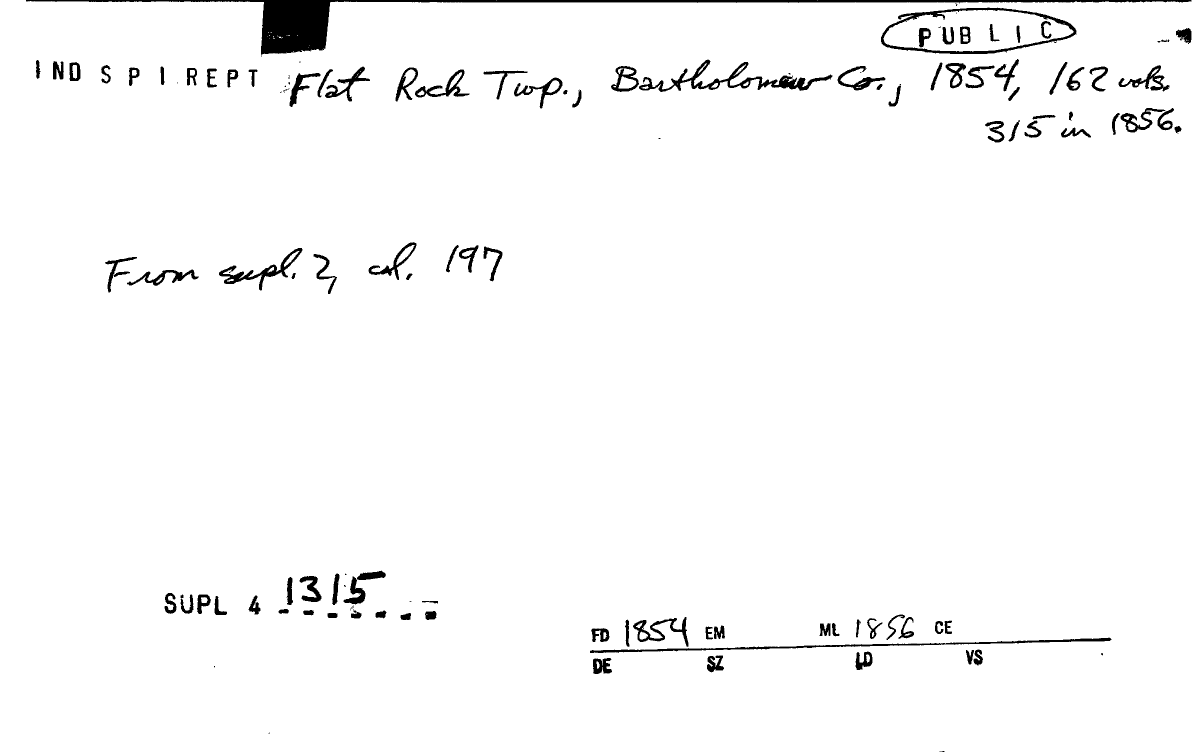 PUBLIC
IND SPI REPT Flat Rock Twp., Bartholomew Co., 1854, 162 vols.
315 in 1856.
From supl. 2, col. 197
SUPL 4 1315
FD 1854 EM ML 1856 CE
DE SZ LD VS